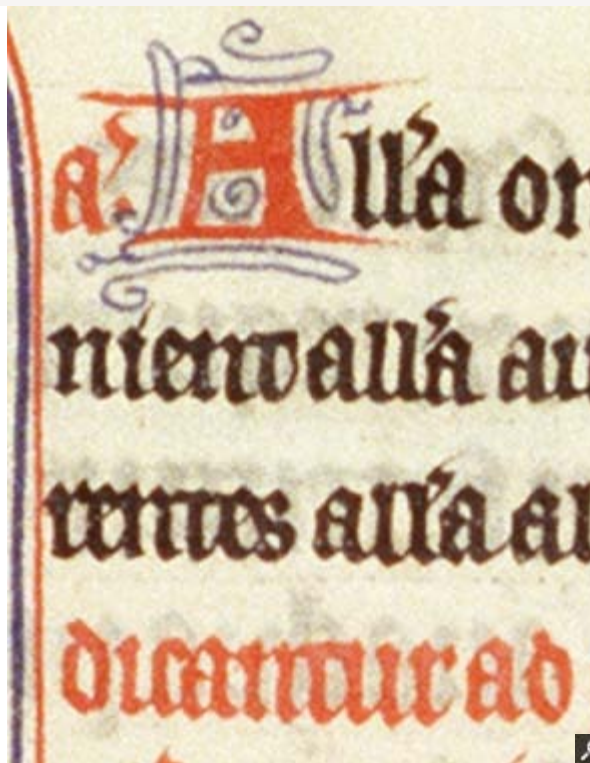 a' All'a or
nient all'a au
rentes all'a al
dicantur ad